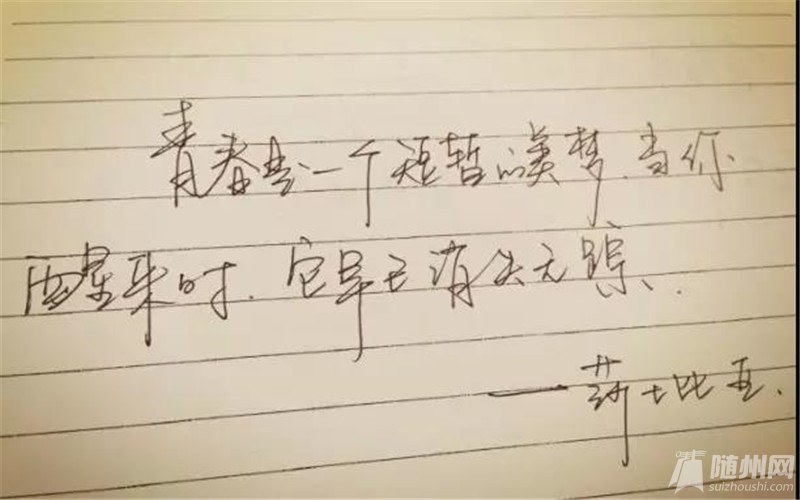 青春是一个短暂的美梦.当你
醒来时.它早已消失无踪.
——莎士比亚.
随州网
suizhoushi.com